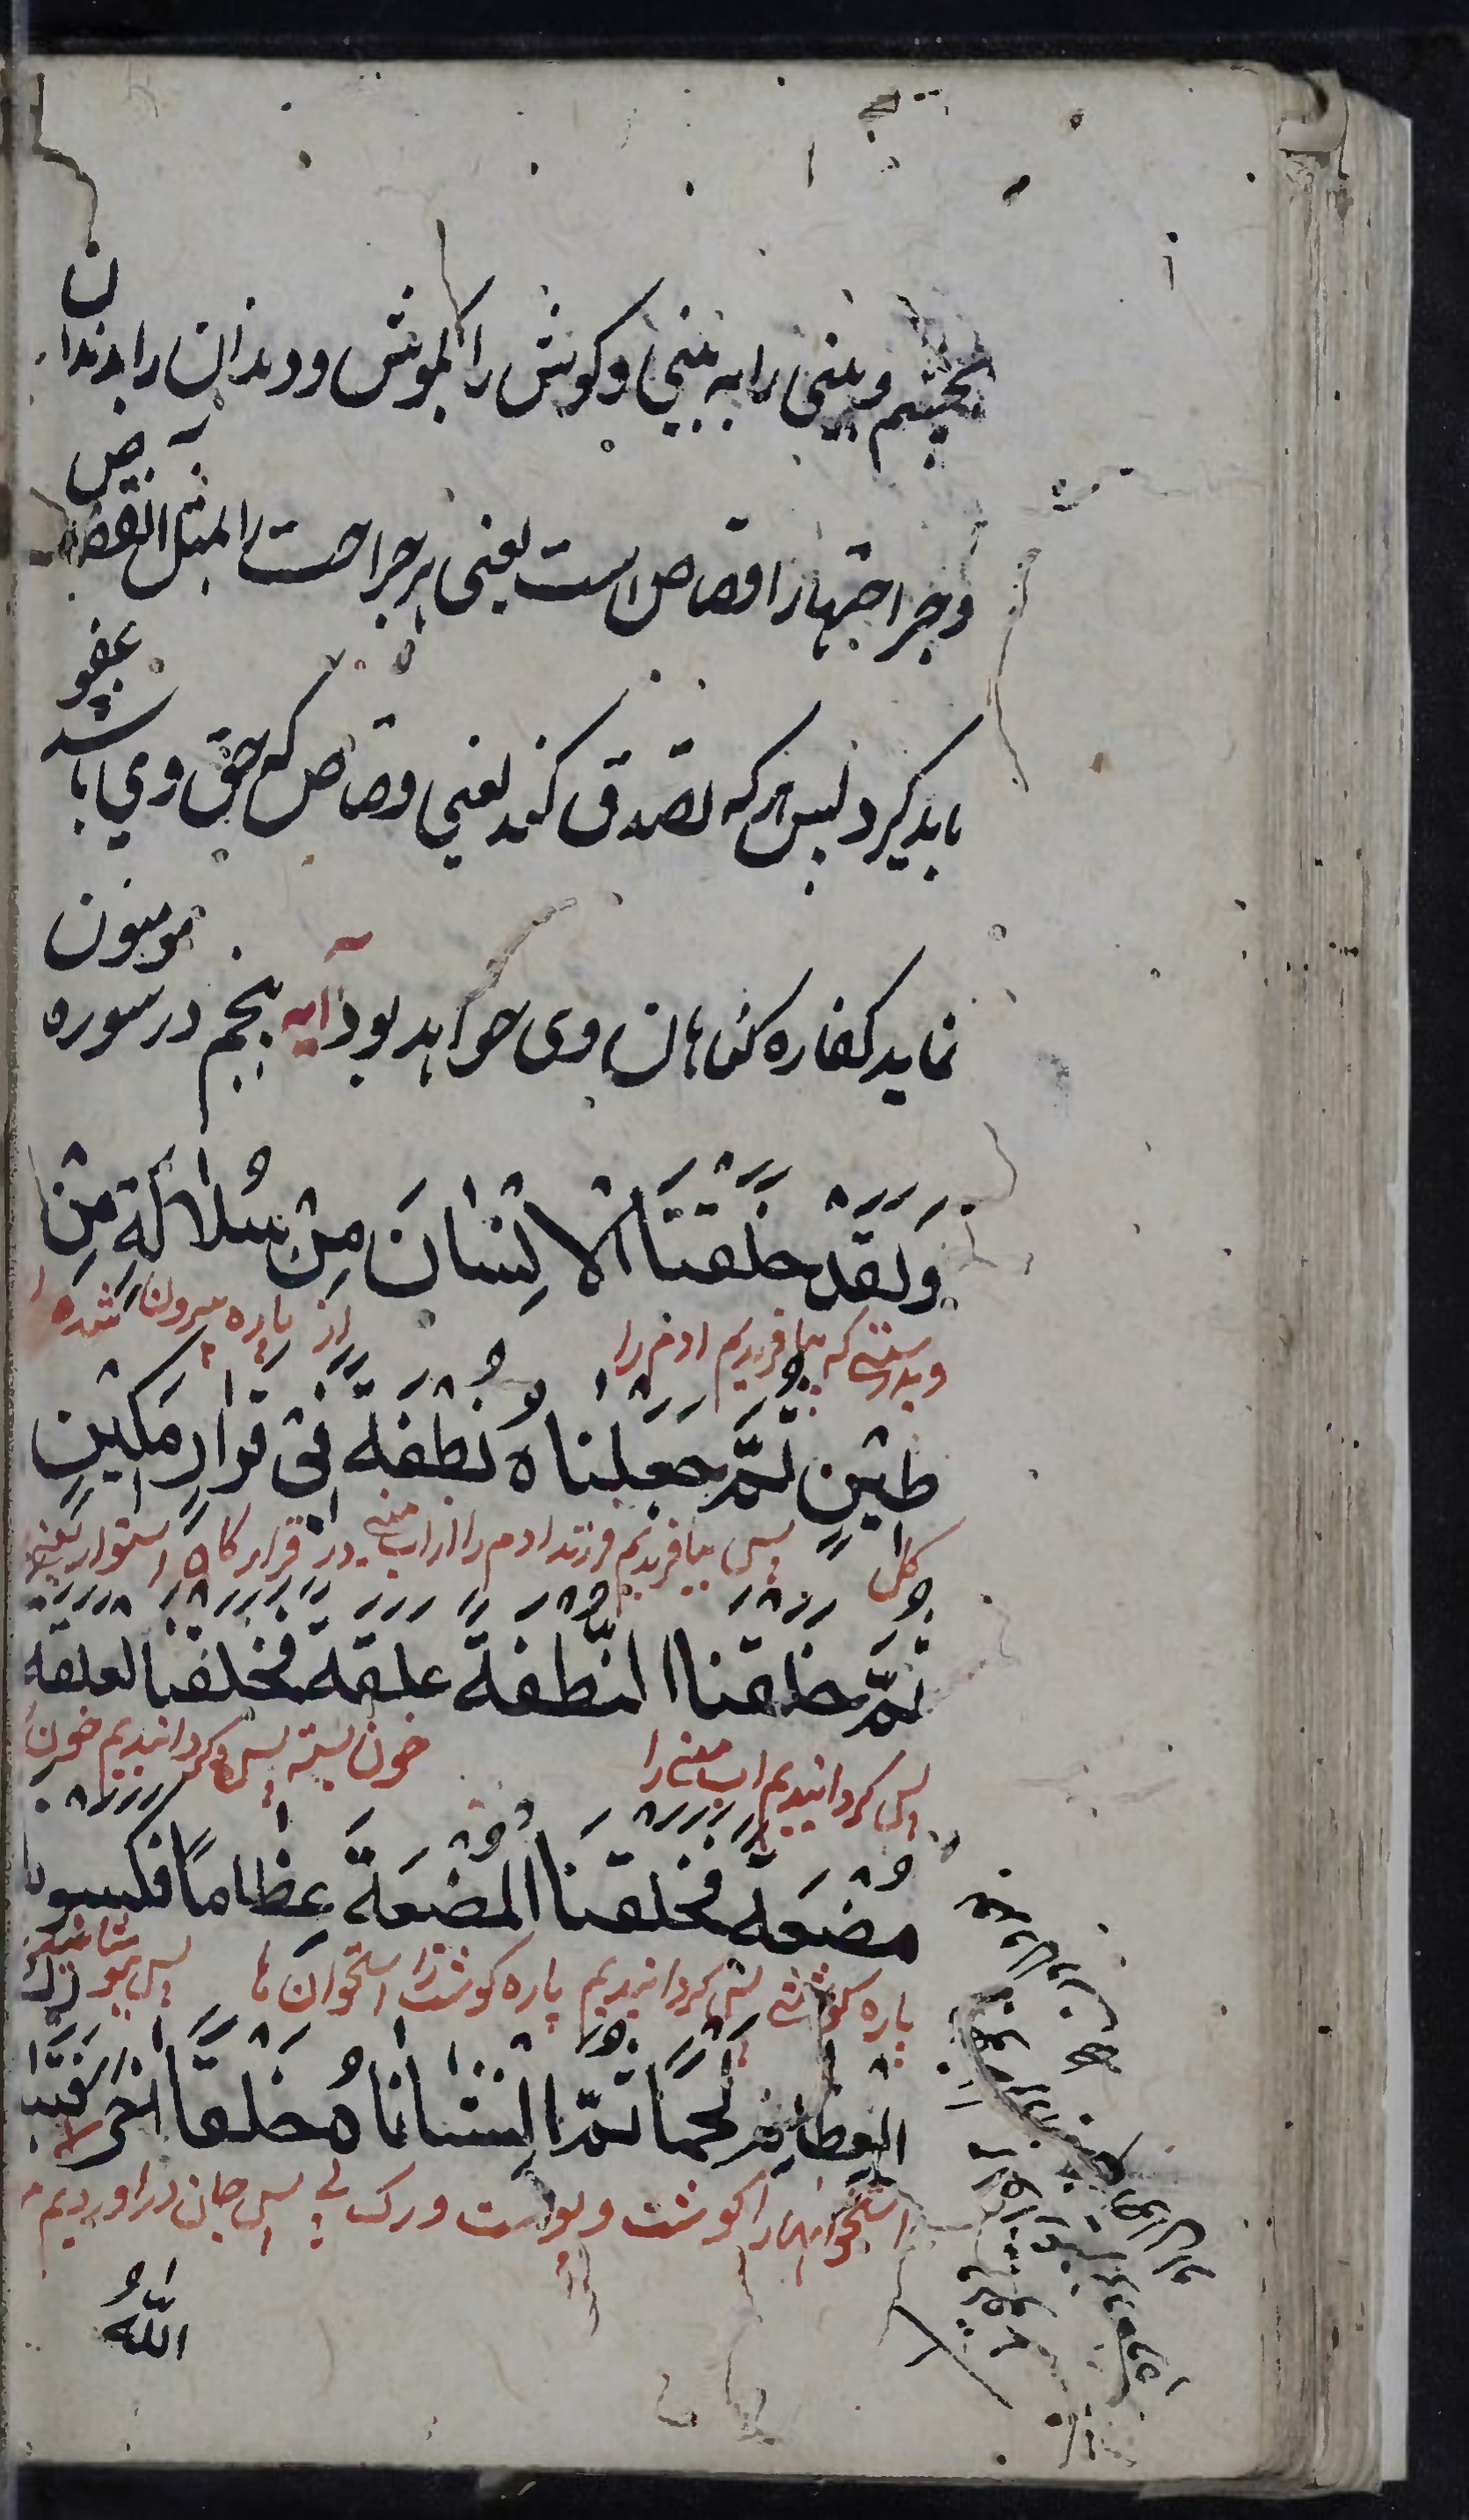 بچشم و بینی را به بینی و کوش را بکوش و دندان را بدندان
و جراحتها را قصاص است یعنی هر جراحت را مثل انقصاص
باید کرد پس هر که تصدق کند یعنی قصاص که حق وی باشد عفو
نماید کفاره کناهان وی خواهد بود آیه پنجم در سوره مومنون
وَلَقَدْ خَلَقْنَا الْاِنْسٰانَ مِنْ سُلٰالَةٍ مِنْ
و بدرستی که بیافریدیم ادم را از پاره بیرون کشیده
طٖينٍ ثُمَّ جَعَلْنٰاهُ نُطْفَةً فٖی قَرٰارٍ مَكٖينٍ
کل پس بیافریدیم فرزند ادم را از اب منی در قرار کاه استوار یعنی
ثُمَّ خَلَقْنَا النُّطْفَةَ عَلَقَةً فَخَلَقْنَا لعَلَقَةَ
پس کردانیدیم اب منی را خون بسته پس کردانیدیم خون
مُضْغَةً فَخَلَقْنَا الْمُضْغَةَ عِظٰامًا فَكَسَوْنَا
پاره کوشتی پس کردانیدیم پاره کوشت را استخوان ها پس بپوشانیدیم
الْعِظٰامَ لَحْمًا ثُمَّ اَنْشَأْنٰاهُ خَلْقًا اٰخَرَ فَتَبٰارَكَ
استخوانها را کوشت و پوست و رک و پی پس جان در اوردیم
اللّٰهُ